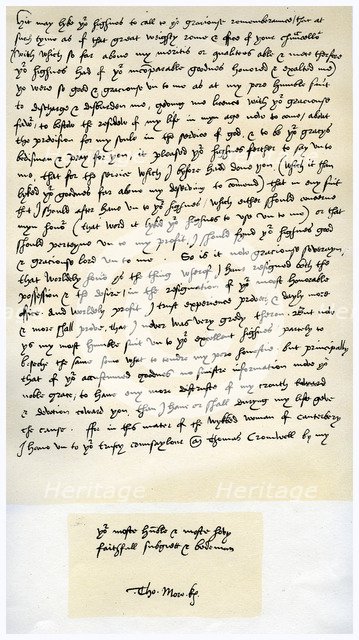 Hit may lyke yor highnes to call to yor graciouse remembraunce, that at
such tyme as of that great weighty rome & office of your chauncellor
(with which so far above my merites or qualitees able & mete therfore
yor highnes had of yor incomparable goodnes honored & exalted me)
ye were so good & graciouse vn to me as at my pore humble suit
to discharge & disburden me, geving me licence with yor graciouse
favor, to bestow the residew of my life in myn age now to come, about
the provision for my soule in the service of god, & to be yor gracys
bedisman & pray for you, it pleased yor highnes ferther to say vn to
me, that for the service which I byfore had done you (which it then
lyked yor goodnes far above my deserving to commend) that in eny suit
that I should after have vn to yor highnes, which either should concerne
myn honor (that word it lyked yor highnes to vse vn to me) or that
should perteyne vn to my profit, I should fynd yor highnes good
& graciouse lord vn to me . So is it now graciouse soverayn,
that worldely honor ys the thing wherof I have resigned both the
possession & the desire, in the resignation of yor most honorable
office. And worldely profit, I trust experience proveth, & dayly more
& more shall prove, that I never was very gredy theron. But now
ys my most humble suit vn to yor excellent highnes, partely to
beseche the same some what to tendre my pore honestie, but principally
that of yor accustumed goodnes no sinistre information move yor
noble grace, to have eny more distruste of my trouth
& devotion toward you, then I have or shall duryng my life geve
the cause. ffor in this mater of the wykked woman of canterbery
I have vn to yor trusty counsaylour Mr Thomas Cromwell by my
yor moste humble & moste hevy
faithfull subgiett & bedeman
Tho. More. kg.
Heritage
Heritage